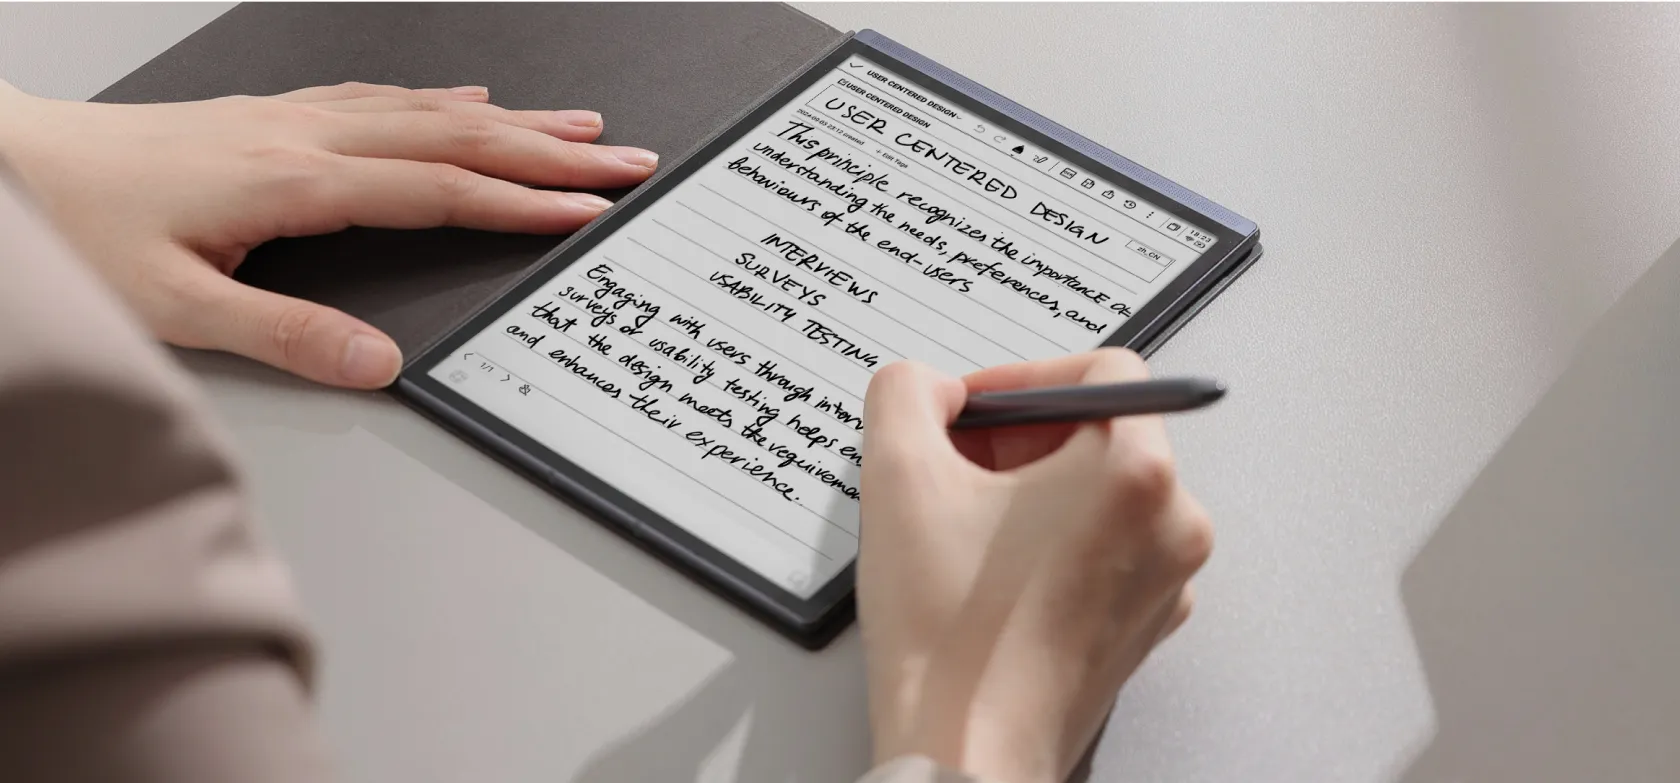 USER CENTERED DESIGN
USER CENTERED DESIGN
USER CENTERED DESIGN
2024-09-03 23:12 created + Edit Tags
zh_CN
18:23
This principle recognizes the importance of
understanding the needs, preferences, and
behaviours of the end-users
INTERVIEWS
SURVEYS
USABILITY TESTING
Engaging with users through
surveys or usability testing helps
that the design meets the
and enhances their experience.
1/1